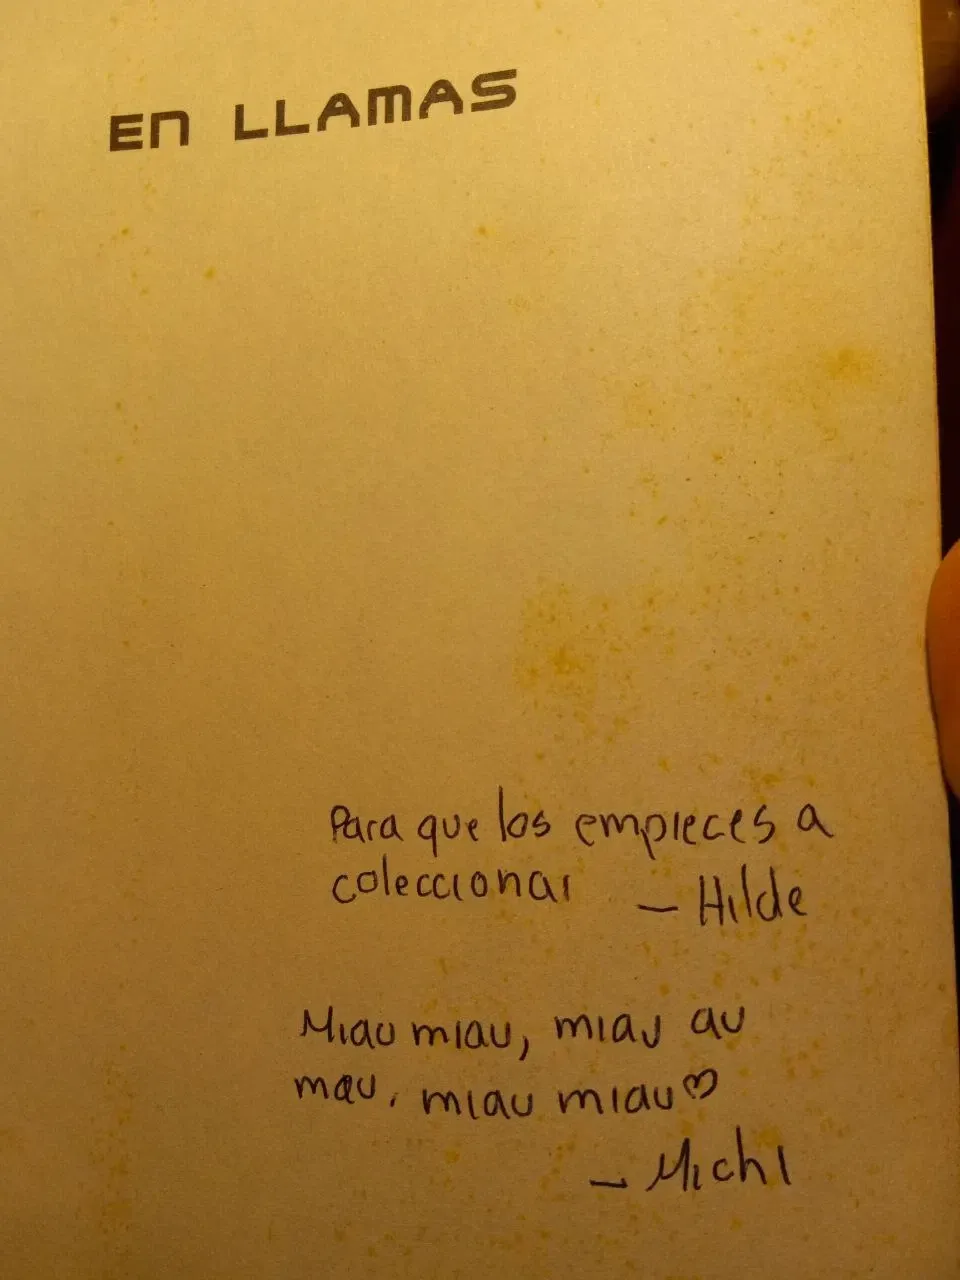 EN LLAMAS
Para que los empieces a
coleccionar — Hilde
Miau miau, miau au
mau. miau miau♡
— Michi